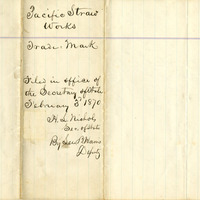 Pacific Straw
Works
Trade Mark
Filed in office of
the Secretary of State
February 3 1870
H. L. Nichols
Sec. of State
By
Deputy